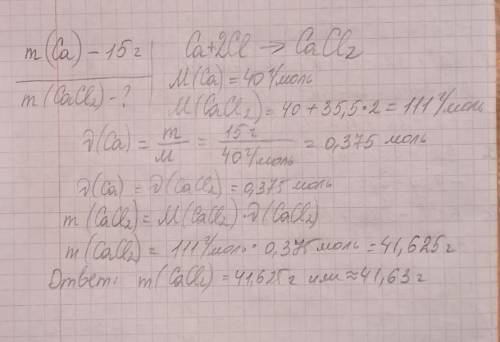 m(Ca) – 15 г
m(CaCl₂) – ?
Ca+2Cl → CaCl₂
M(Ca) = 40 г/моль
M(CaCl₂) = 40 + 35,5 · 2 = 111 г/моль
ϑ(Ca) = m/M = 15 г/40 г/моль = 0,375 моль
ϑ(Ca) = ϑ(CaCl₂) = 0,375 моль
m(CaCl₂) = M(CaCl₂) · ϑ(CaCl₂)
m(CaCl₂) = 111 г/моль · 0,375 моль = 41,625 г
Ответ: m(CaCl₂) = 41,625 г или ≈ 41,63 г